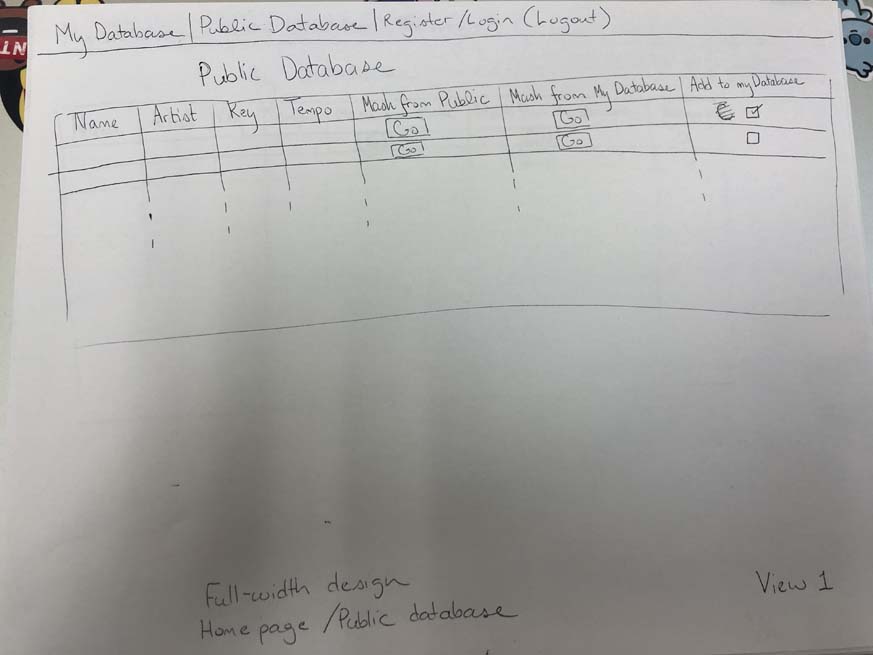 My Database | Public Database | Register/Login (Logout)
Public Database
Name | Artist | Key | Tempo | Mash from Public | Mash from My Database | Add to my Database
Go Go
Go Go
Full-width design
Home page /Public database
View 1